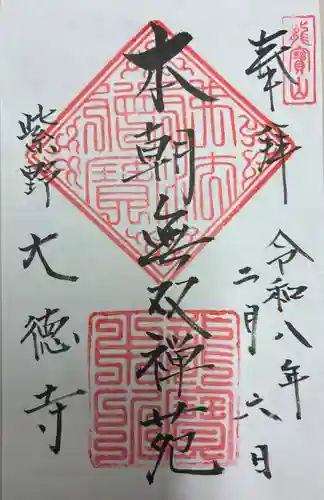 奉拝
龍寳山
令和八年
二月六日
本朝無双禅苑
紫野
大徳寺